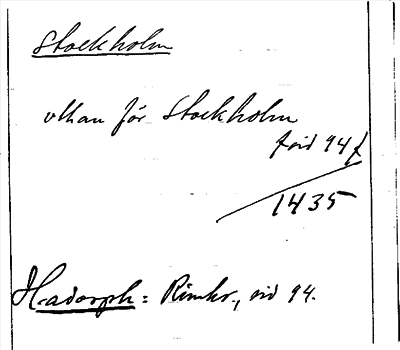 Stockholm
vthan för Stockholm
sid 94
1435
Hadorph: Rimkr., sid 94.